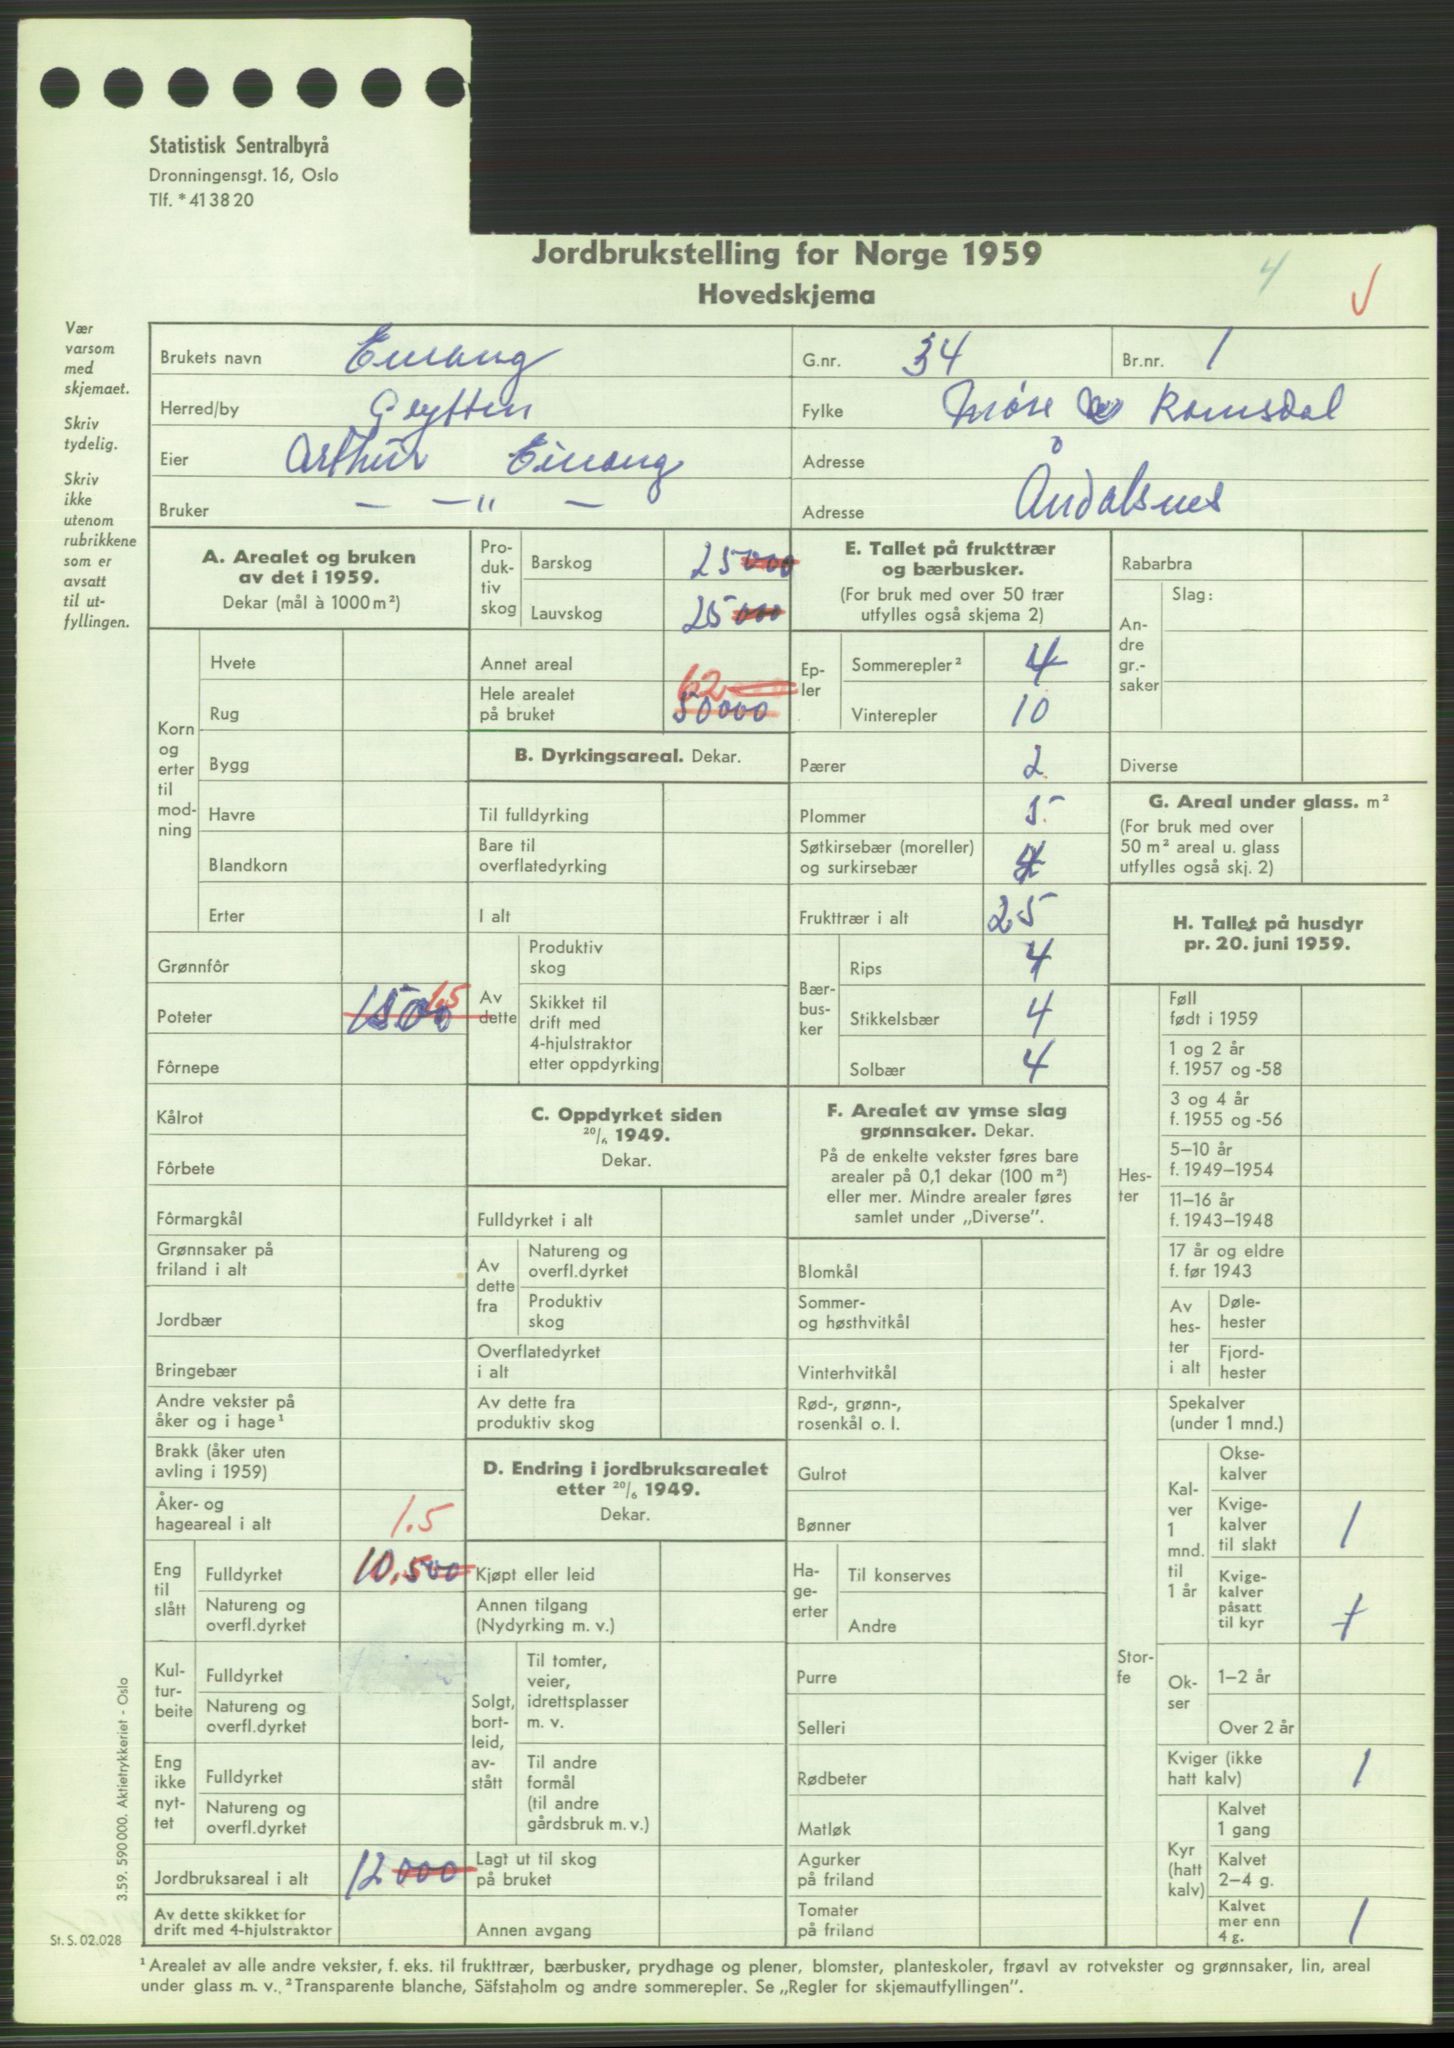 Statistisk Sentralbyrå
Dronningensgt. 16, Oslo
Tlf. * 41 38 20
Jordbrukstelling for Norge 1959
Hovedskjema
4
Vær
varsom
med
skjemaet.
Skriv
tydelig.
Skriv
ikke
utenom
rubrikkene
som er
avsatt
til ut-
fyllingen.
Brukets navn Einang G.nr. 34 Br.nr. 1
Herred/by Grytten Fylke Møre og Romsdal
Eier Arthur Einang Adresse
Bruker — — " — Adresse Åndalsnes
A. Arealet og bruken
av det i 1959.
Dekar (mål à 1000 m²)
Korn
og
erter
til
mod-
ning
Hvete
Rug
Bygg
Havre
Blandkorn
Erter
Grønnfôr
Poteter 1500 1.5
Fôrnepe
Kålrot
Fôrbete
Fôrmargkål
Grønnsaker på
friland i alt
Jordbær
Bringebær
Andre vekster på
åker og i hage¹
Brakk (åker uten
avling i 1959)
Åker- og
hageareal i alt 1.5
Eng
til
slått
Fulldyrket 10.500
Natureng og
overfl.dyrket
Kul-
tur-
beite
Fulldyrket
Natureng og
overfl.dyrket
Eng
ikke
nyt-
tet
Fulldyrket
Natureng og
overfl.dyrket
Jordbruksareal i alt 12000
Av dette skikket for
drift med 4-hjulstraktor
Pro-
duk-
tiv
skog
Barskog 25000
Lauvskog 25000
Annet areal
Hele arealet
på bruket 62 50000
B. Dyrkingsareal. Dekar.
Til fulldyrking
Bare til
overflatedyrking
I alt
Av
dette
Produktiv
skog
Skikket til
drift med
4-hjulstraktor
etter oppdyrking
C. Oppdyrket siden
20/6 1949.
Dekar.
Fulldyrket i alt
Av
dette
fra
Natureng og
overfl.dyrket
Produktiv
skog
Overflatedyrket
i alt
Av dette fra
produktiv skog
D. Endring i jordbruksarealet
etter 20/6 1949.
Dekar.
Kjøpt eller leid
Annen tilgang
(Nydyrking m. v.)
Solgt,
bort-
leid,
av-
stått
Til tomter,
veier,
idrettsplasser
m. v.
Til andre
formål
(til andre
gårdsbruk m. v.)
Lagt ut til skog
på bruket
Annen avgang
E. Tallet på frukttrær
og bærbusker.
(For bruk med over 50 trær
utfylles også skjema 2)
Ep-
ler
Sommerepler² 4
Vinterepler 10
Pærer 2
Plommer 5
Søtkirsebær (moreller)
og surkirsebær 4
Frukttrær i alt 25
Bær-
bus-
ker
Rips 4
Stikkelsbær 4
Solbær 4
F. Arealet av ymse slag
grønnsaker. Dekar.
På de enkelte vekster føres bare
arealer på 0,1 dekar (100 m²)
eller mer. Mindre arealer føres
samlet under „Diverse”.
Blomkål
Sommer-
og høsthvitkål
Vinterhvitkål
Rød-, grønn-,
rosenkål o. l.
Gulrot
Bønner
Ha-
ge-
erter
Til konserves
Andre
Purre
Selleri
Rødbeter
Matløk
Agurker
på friland
Tomater
på friland
Rabarbra
An-
dre
gr.-
saker
Slag:
Diverse
G. Areal under glass. m²
(For bruk med over
50 m² areal u. glass
utfylles også skj. 2)
H. Tallet på husdyr
pr. 20. juni 1959.
Hes-
ter
Føll
født i 1959
1 og 2 år
f. 1957 og -58
3 og 4 år
f. 1955 og -56
5–10 år
f. 1949–1954
11–16 år
f. 1943–1948
17 år og eldre
f. før 1943
Av
hes-
ter
i alt
Døle-
hester
Fjord-
hester
Stor-
fe
Spekalver
(under 1 mnd.)
Kal-
ver
1
mnd.
til
1 år
Okse-
kalver
Kvige-
kalver
til slakt 1
Kvige-
kalver
påsatt
til kyr 1
Ok-
ser
1–2 år
Over 2 år
Kviger (ikke
hatt kalv) 1
Kyr
(hatt
kalv)
Kalvet
1 gang
Kalvet
2–4 g.
Kalvet
mer enn
4 g. 1
3.59. 590 000. Aktietrykkeriet - Oslo
St. S. 02.028
¹ Arealet av alle andre vekster, f. eks. til frukttrær, bærbusker, prydhage og plener, blomster, planteskoler, frøavl av rotvekster og grønnsaker, lin, areal
under glass m. v. ² Transparente blanche, Säfstaholm og andre sommerepler. Se „Regler for skjemautfyllingen”.